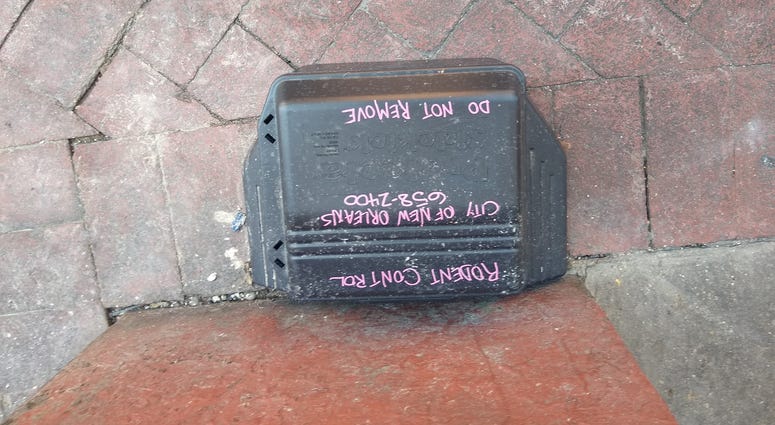 RODENT CONTROL
CITY OF NEW ORLEANS
658-2400
DO NOT REMOVE